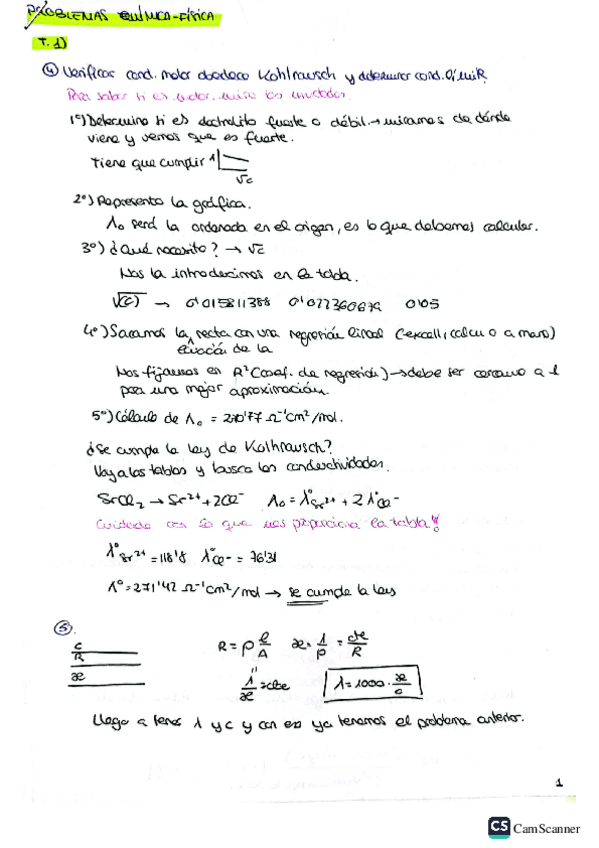 PROBLEMAS QUÍMICA-FÍSICA
T. 1)
④ Verificar cond. molar obedece Kohlrausch y determinar cond.
Para saber si es molar, miro las unidades
1º) Determino si es electrolito fuerte o débil → miramos de dónde
viene y vemos que es fuerte.
Tiene que cumplir Λ
√c
2º) Represento la gráfica.
Λ₀ será la ordenada en el origen, es lo que debemos calcular.
3º) ¿Qué necesito? → √c
Nos la introducimos en la tabla.
√(c) → 0'015811388 0'0 0'05
4º) Sacamos la recta con una regresión lineal (excell, calcu o a mano)
ecuación de la
Nos fijamos en R² (coef. de regresión) → debe ser cercano a 1
para una mejor aproximación.
5º) Cálculo de Λ₀ = 270'77 Ω⁻¹cm²/mol.
¿Se cumple la ley de Kolhrausch?
Voy a las tablas y busco las conductividades.
SrCl₂ → Sr²⁺ + 2Cl⁻ Λ₀ = λ°Sr²⁺ + 2λ°Cl⁻
Cuidado con lo que nos proporciona la tabla!!
λ°Sr²⁺ = 118'8 λ°Cl⁻ = 76'31
Λ° = 271'42 Ω⁻¹cm²/mol → se cumple la ley
⑤
c
R
æ
R = ρ l/A æ = 1/ρ = cte/R
"
1/æ = cte λ = 1000 · æ/c
Llego a tener λ y c y con eso ya tenemos el problema anterior.
1
CS CamScanner